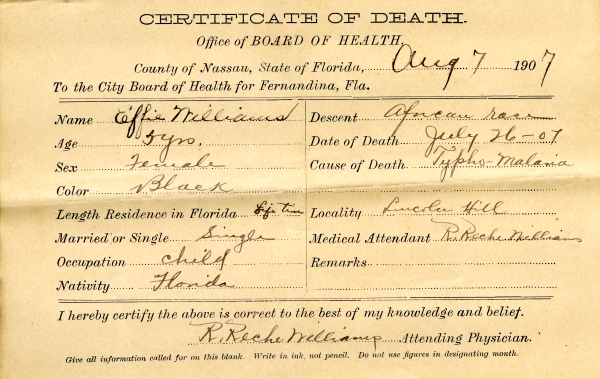 CERTIFICATE OF DEATH.
Office of BOARD OF HEALTH,
County of Nassau, State of Florida, Aug 7 1907
To the City Board of Health for Fernandina, Fla.
Name Effie Williams
Age 5 yrs.
Sex Female
Color Black
Length Residence in Florida Life time
Married or Single Single
Occupation Child
Nativity Florida
Descent African race
Date of Death July 26-07
Cause of Death Typho-Malaria
Locality Lincoln Hill
Medical Attendant R. Reche Williams
Remarks
I hereby certify the above is correct to the best of my knowledge and belief.
R. Reche Williams Attending Physician.
Give all information called for on this blank. Write in ink, not pencil. Do not use figures in designating month.